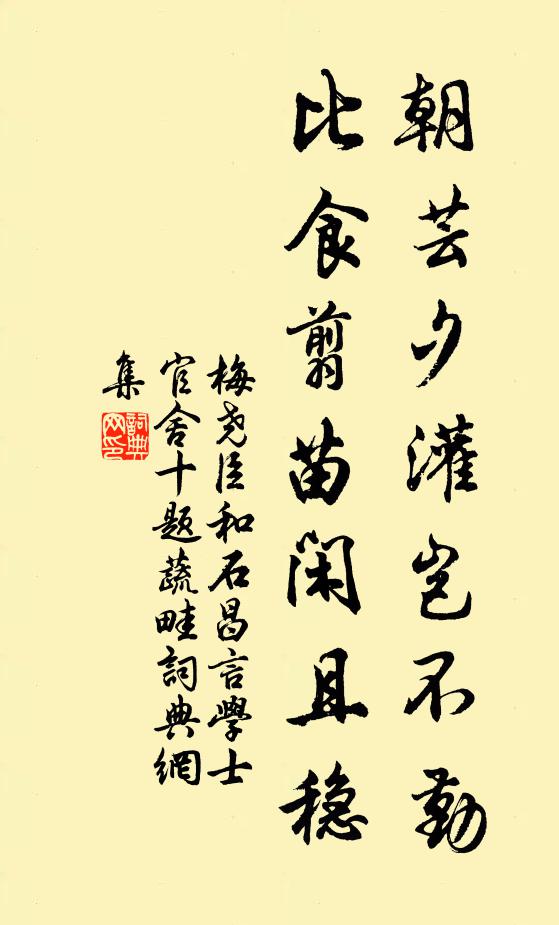 朝芸夕灌岂不勤
比食翦苗闲且稳
梅尧臣和石昌言學士
官舍十题蔬畦詞典網
集
詞典网印